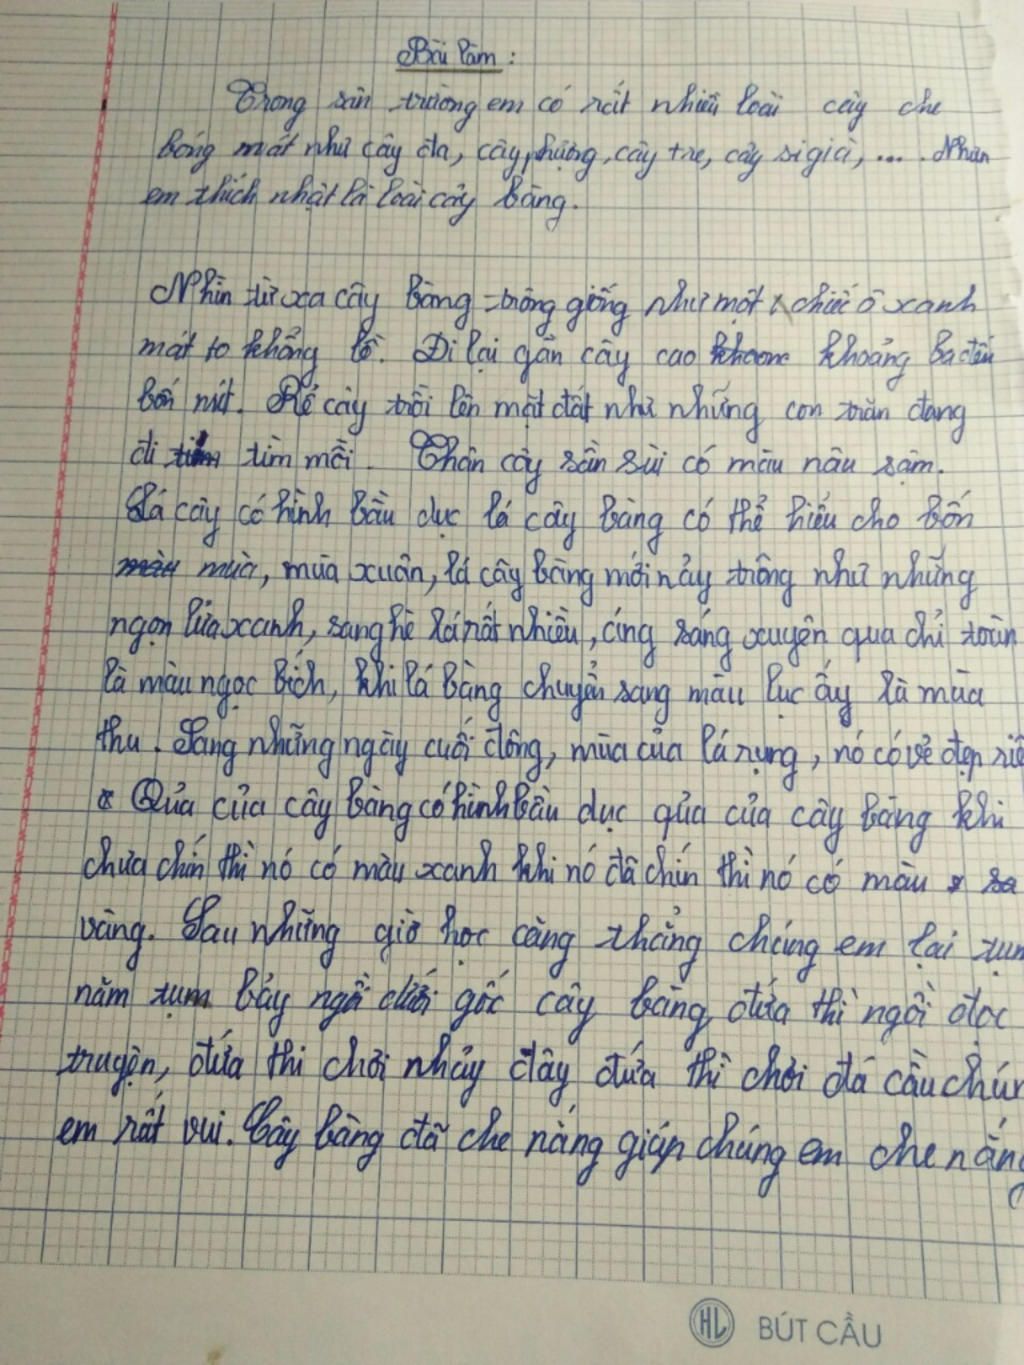 Bài làm:
Trong sân trường em có rất nhiều loài cây che
bóng mát như cây đa, cây phượng, cây tre, cây si già, .... Nhưn
em thích nhật là loài cây bàng.
Nhìn từ xa cây bàng trông giống như một chiếc ô xanh
mát to khổng lồ. Đi lại gần cây cao khoảng ba đến
bốn mét. Rễ cây trồi lên mặt đất như những con trăn đang
đi tìm mồi. Thân cây sần sùi có màu nâu sậm.
Lá cây có hình bầu dục lá cây bàng có thể hiểu cho bốn
mùa, mùa xuân, lá cây bàng mới nảy trông như những
ngọn lửa xanh, sang hè lá rất nhiều, áng sáng xuyên qua chỉ toàn
là màu ngọc bích, khi lá bàng chuyển sang màu lục ấy là mùa
thu. Sang những ngày cuối đông, mùa của lá rụng, nó có vẻ đẹp riê
Qủa của cây bàng có hình bầu dục qủa của cây bàng khi
chưa chín thì nó có màu xanh khi nó đã chín thì nó có màu
vàng. Sau những giờ học căng thẳng chúng em lại tụm
năm tụm bảy ngồi dưới gốc cây bàng, đứa thì ngồi đọc
truyện, đứa thi chơi nhảy dây đứa thì chơi đá cầu chún
em rất vui. Cây bàng đã che nắng giúp chúng em che nắng
HL BÚT CẦU